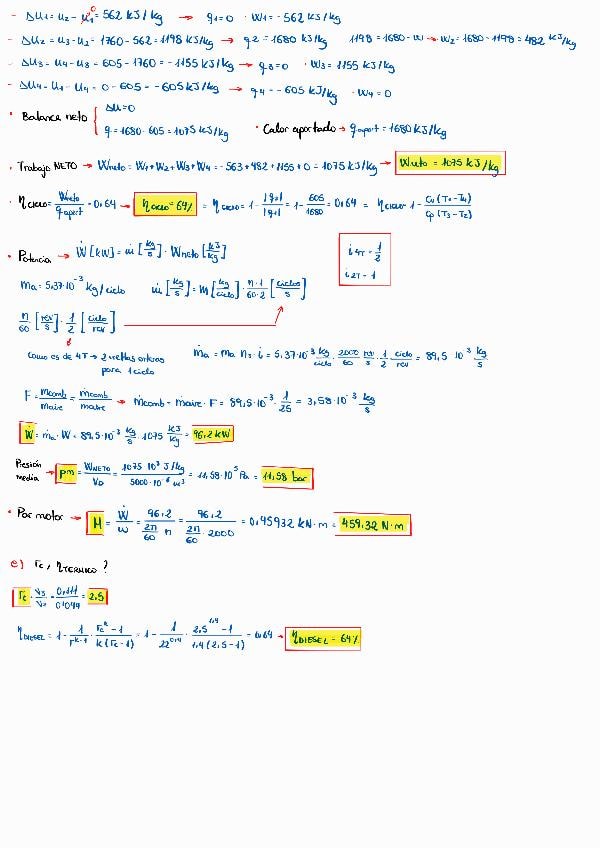 - Δu₁ = u₂ - u₁⁰ = 562 kJ/kg → q₁ = 0 · W₁ = -562 kJ/kg
- Δu₂ = u₃ - u₂ = 1760 - 562 = 1198 kJ/kg → q₂ = 1680 kJ/kg 1198 = 1680 - W → W₂ = 1680 - 1198 = 482 kJ/kg
- Δu₃ = u₄ - u₃ = 605 - 1760 = -1155 kJ/kg → q₃ = 0 · W₃ = 1155 kJ/kg
- Δu₄ = u₁ - u₄ = 0 - 605 = -605 kJ/kg → q₄ = -605 kJ/kg · W₄ = 0
· Balance neto { Δu = 0
q = 1680 - 605 = 1075 kJ/kg · Calor aportado → q aport = 1680 kJ/kg
· Trabajo NETO → Wneto = W₁ + W₂ + W₃ + W₄ = -563 + 482 + 1155 + 0 = 1075 kJ/kg → Wneto = 1075 kJ/kg
· η ciclo = Wneto / q aport = 0,64 → η ciclo = 64% = η ciclo = 1 - |q41| / |q41| = 1 - 605/1680 = 0,64 = η ciclo = 1 - Cv (T₄ - T₁) / Cp (T₃ - T₂)
· Potencia → Ẇ [kW] = ṁ [kg/s] · Wneto [kJ/kg]
i 4T = 1/2
i 2T = 1
ma = 5,37·10⁻³ kg/ciclo ṁ [kg/s] = m [kg/ciclo] n·1 / 60·2 [ciclos/s]
n/60 [rev/s] · 1/2 [ciclo/rev]
como es de 4T → 2 vueltas enteras para 1 ciclo
ṁa = ma · n · i = 5,37·10⁻³ kg/ciclo · 2000/60 rev/s · 1/2 ciclo/rev = 89,5·10⁻³ kg/s
F = mcomb / maire = ṁcomb / ṁaire → ṁcomb = ṁaire · F = 89,5·10⁻³ · 1/25 = 3,58·10⁻³ kg/s
Ẇ = ṁa · W = 89,5·10⁻³ kg/s · 1075 kJ/kg = 96,2 kW
Presión media → pm = WNETO / VD = 1075·10³ J/kg / 5000·10⁻⁶ m³ = 11,58·10⁵ Pa = 11,58 bar
· Par motor → M = Ẇ / ω = 96,2 / (2π/60 n) = 96,2 / (2π/60 · 2000) = 0,45932 kN·m = 459,32 N·m
e) rc, ηTERMICO ?
rc = V₃/V₂ = 0,111 / 0,044 = 2,5
ηDIESEL = 1 - 1/r^(k-1) · (rc^k - 1) / (k (rc - 1)) = 1 - 1/22^0,4 · (2,5^1,4 - 1) / (1,4 (2,5 - 1)) = 0,64 → ηDIESEL = 64%